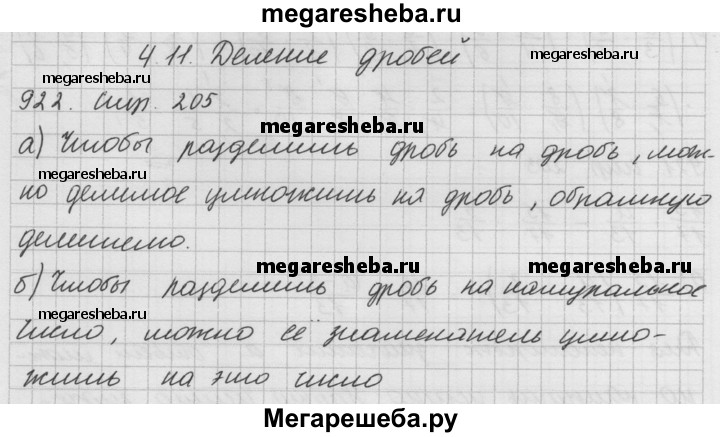 megaresheba.ru
4.11. Деление дробей
megaresheba.ru
megaresheba.ru
922. стр. 205
megaresheba.ru
а) Чтобы разделить дробь на дробь, мож-
megaresheba.ru
но делимое умножить на дробь, обратную
делителю.
megaresheba.ru megaresheba.ru
б) Чтобы разделить дробь на натуральное
число, можно её знаменатель умно-
жить на это число
Мегарешеба.ру